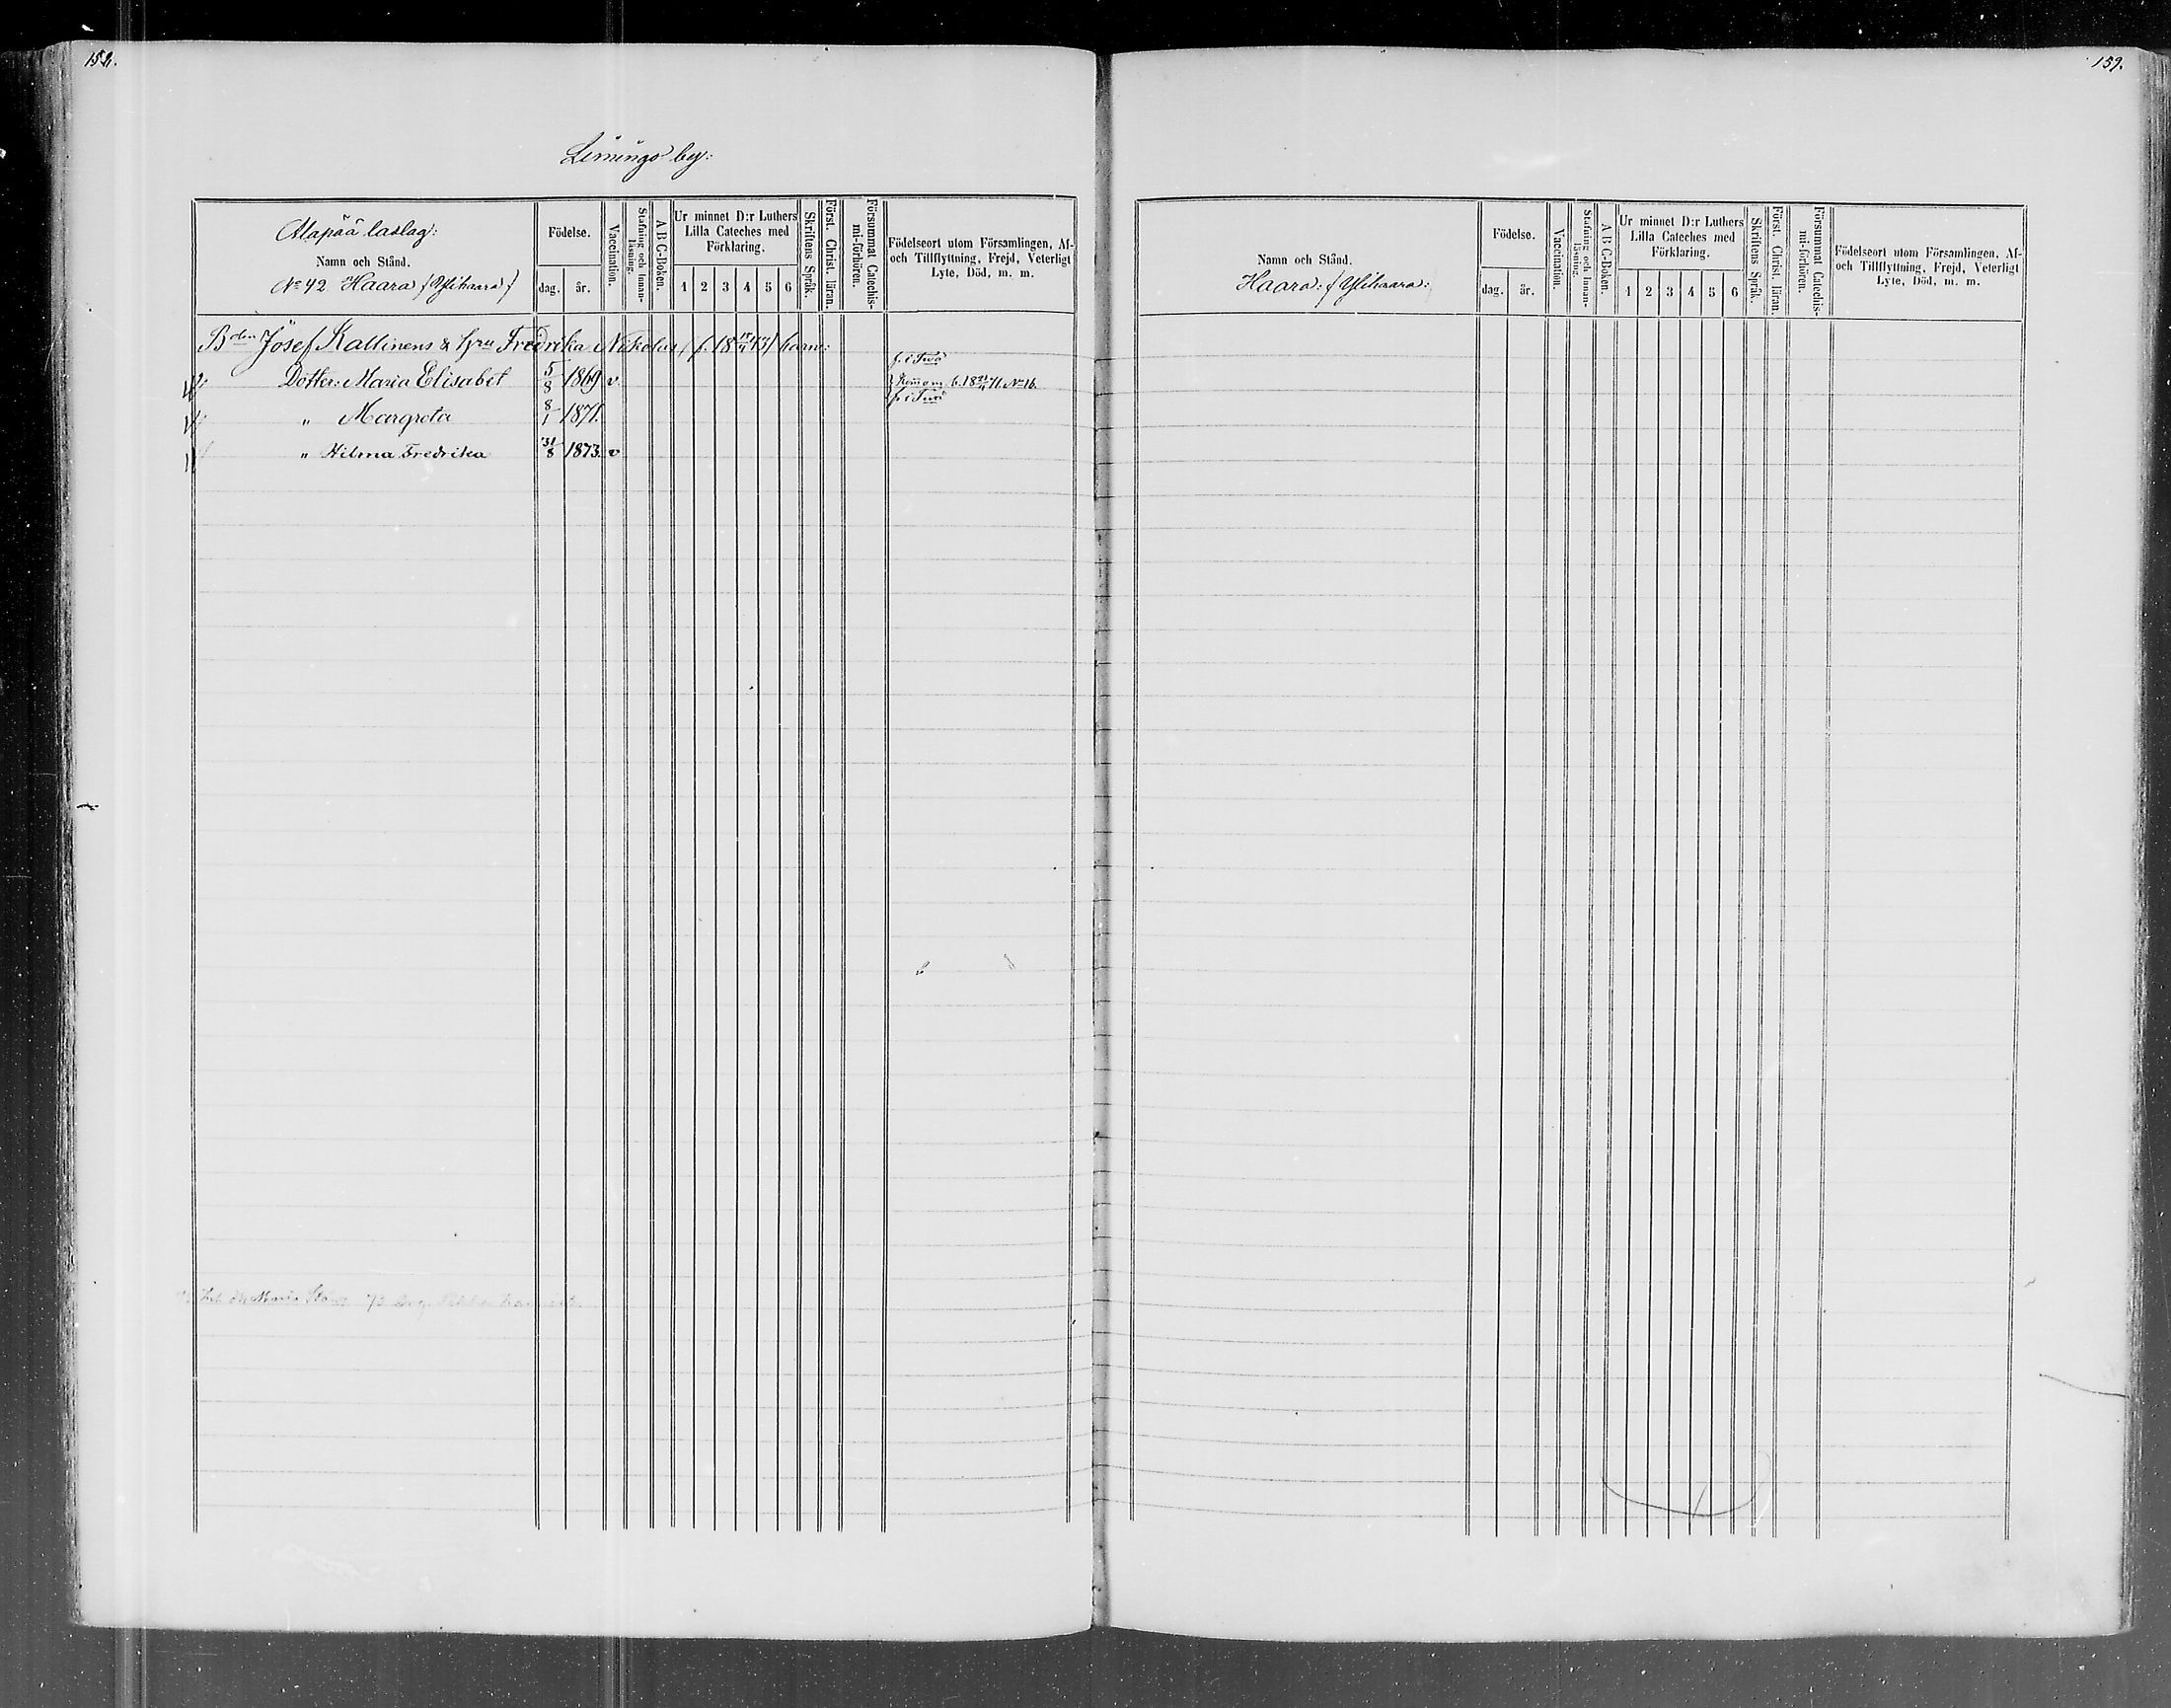 158.
Limingo by:
Alapää laslag:
Namn och Stånd.
No 42 Haara / Ylihaara /
Födelse.
dag. år.
Vaccination.
Stafning och Innanläsning.
A B C-Boken.
Ur minnet D:r Luthers
Lilla Cateches med
Förklaring.
1 2 3 4 5 6
Skriftens Språk.
Först. Christ. läran.
Försummat Catechis-
mi-förhören.
Födelseort utom Församlingen, Af-
och Tillflyttning, Frejd, Veterligt
Lyte, Död, m. m.
Bden Josef Kallinens & hru Fredrika barn:
f. i
Dotter: Maria Elisabet 5/8 1869 v
f. i
" Margreta 8/1 1871.
" Hilma Fredrika 31/8 1873. v
Maria
159.
Namn och Stånd.
Haara: / Ylihaara:
Födelse.
dag. år.
Vaccination.
Stafning och Innan-
läsning.
A B C-Boken.
Ur minnet D:r Luthers
Lilla Cateches med
Förklaring.
1 2 3 4 5 6
Skriftens Språk.
Först. Christ. läran.
Försummat Catechis-
mi-förhören.
Födelseort utom Församlingen, Af-
och Tillflyttning, Frejd, Veterligt
Lyte, Död, m. m.